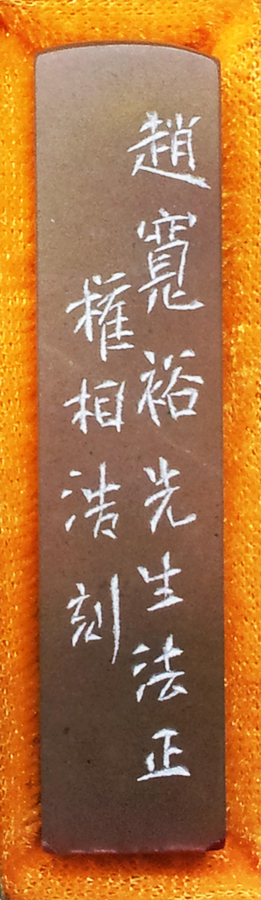 趙寬裕先生法正
權相浩刻